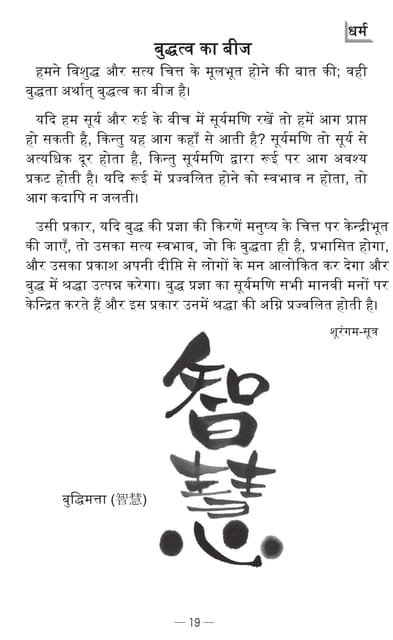 धर्म
बुद्धत्व का बीज
हमने विशुद्ध और सत्य चित्त के मूलभूत होने की बात की; वही
बुद्धता अर्थात् बुद्धत्व का बीज है।
यदि हम सूर्य और रुई के बीच में सूर्यमणि रखें तो हमें आग प्राप्त
हो सकती है, किन्तु यह आग कहाँ से आती है? सूर्यमणि तो सूर्य से
अत्यधिक दूर होता है, किन्तु सूर्यमणि द्वारा रूई पर आग अवश्य
प्रकट होती है। यदि रूई में प्रज्वलित होने को स्वभाव न होता, तो
आग कदापि न जलती।
उसी प्रकार, यदि बुद्ध की प्रज्ञा की किरणें मनुष्य के चित्त पर केन्द्रीभूत
की जाएँ, तो उसका सत्य स्वभाव, जो कि बुद्धता ही है, प्रभासित होगा,
और उसका प्रकाश अपनी दीप्ति से लोगों के मन आलोकित कर देगा और
बुद्ध में श्रद्धा उत्पन्न करेगा। बुद्ध प्रज्ञा का सूर्यमणि सभी मानवी मनों पर
केन्द्रित करते हैं और इस प्रकार उनमें श्रद्धा की अग्नि प्रज्वलित होती है।
शूरंगम-सूत्र
智慧
बुद्धिमत्ता (智慧)
— 19 —